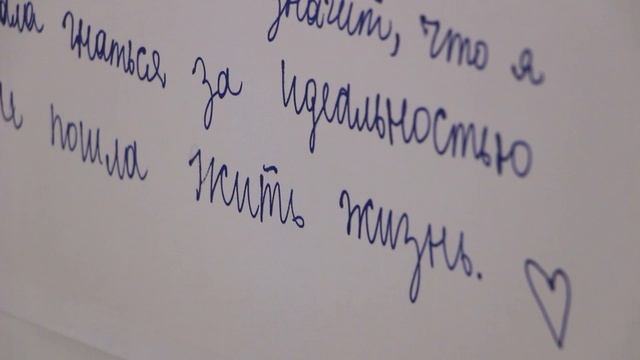 значит, что я
гнаться за идеальностью
и пошла жить жизнь.